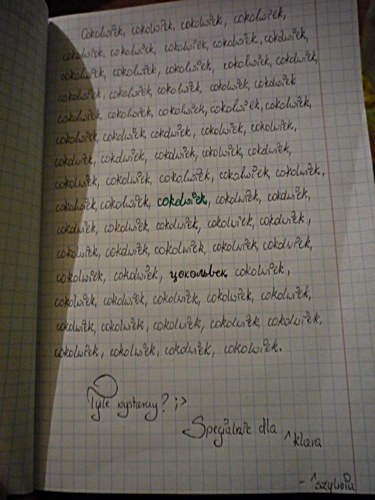 Cokolwiek, cokolwiek, cokolwiek, cokolwiek,
cokolwiek, cokolwiek, cokolwiek, cokolwiek, cokolwiek,
cokolwiek, cokolwiek, cokolwiek, cokolwiek, cokolwiek,
cokolwiek, cokolwiek, cokolwiek, cokolwiek, cokolwiek
cokolwiek, cokolwiek, cokolwiek, cokolwiek, cokolwiek,
cokolwiek, cokolwiek, cokolwiek, cokolwiek, cokolwiek,
cokolwiek, cokolwiek, cokolwiek, cokolwiek, cokolwiek,
cokolwiek, cokolwiek, cokolwiek, cokolwiek, cokolwiek,
cokolwiek, cokolwiek, cokolwiek, cokolwiek, cokolwiek,
cokolwiek, cokolwiek, cokolwiek, cokolwiek, cokolwiek,
cokolwiek, cokolwiek, cokolwiek, cokolwiek, cokolwiek,
cokolwiek, cokolwiek, цокольвек, cokolwiek,
cokolwiek, cokolwiek, cokolwiek, cokolwiek, cokolwiek,
cokolwiek, cokolwiek, cokolwiek, cokolwiek, cokolwiek.
cokolwiek, cokolwiek, cokolwiek, cokolwiek.
Tyle wystarczy? ;>
Specjalnie dla ^klara